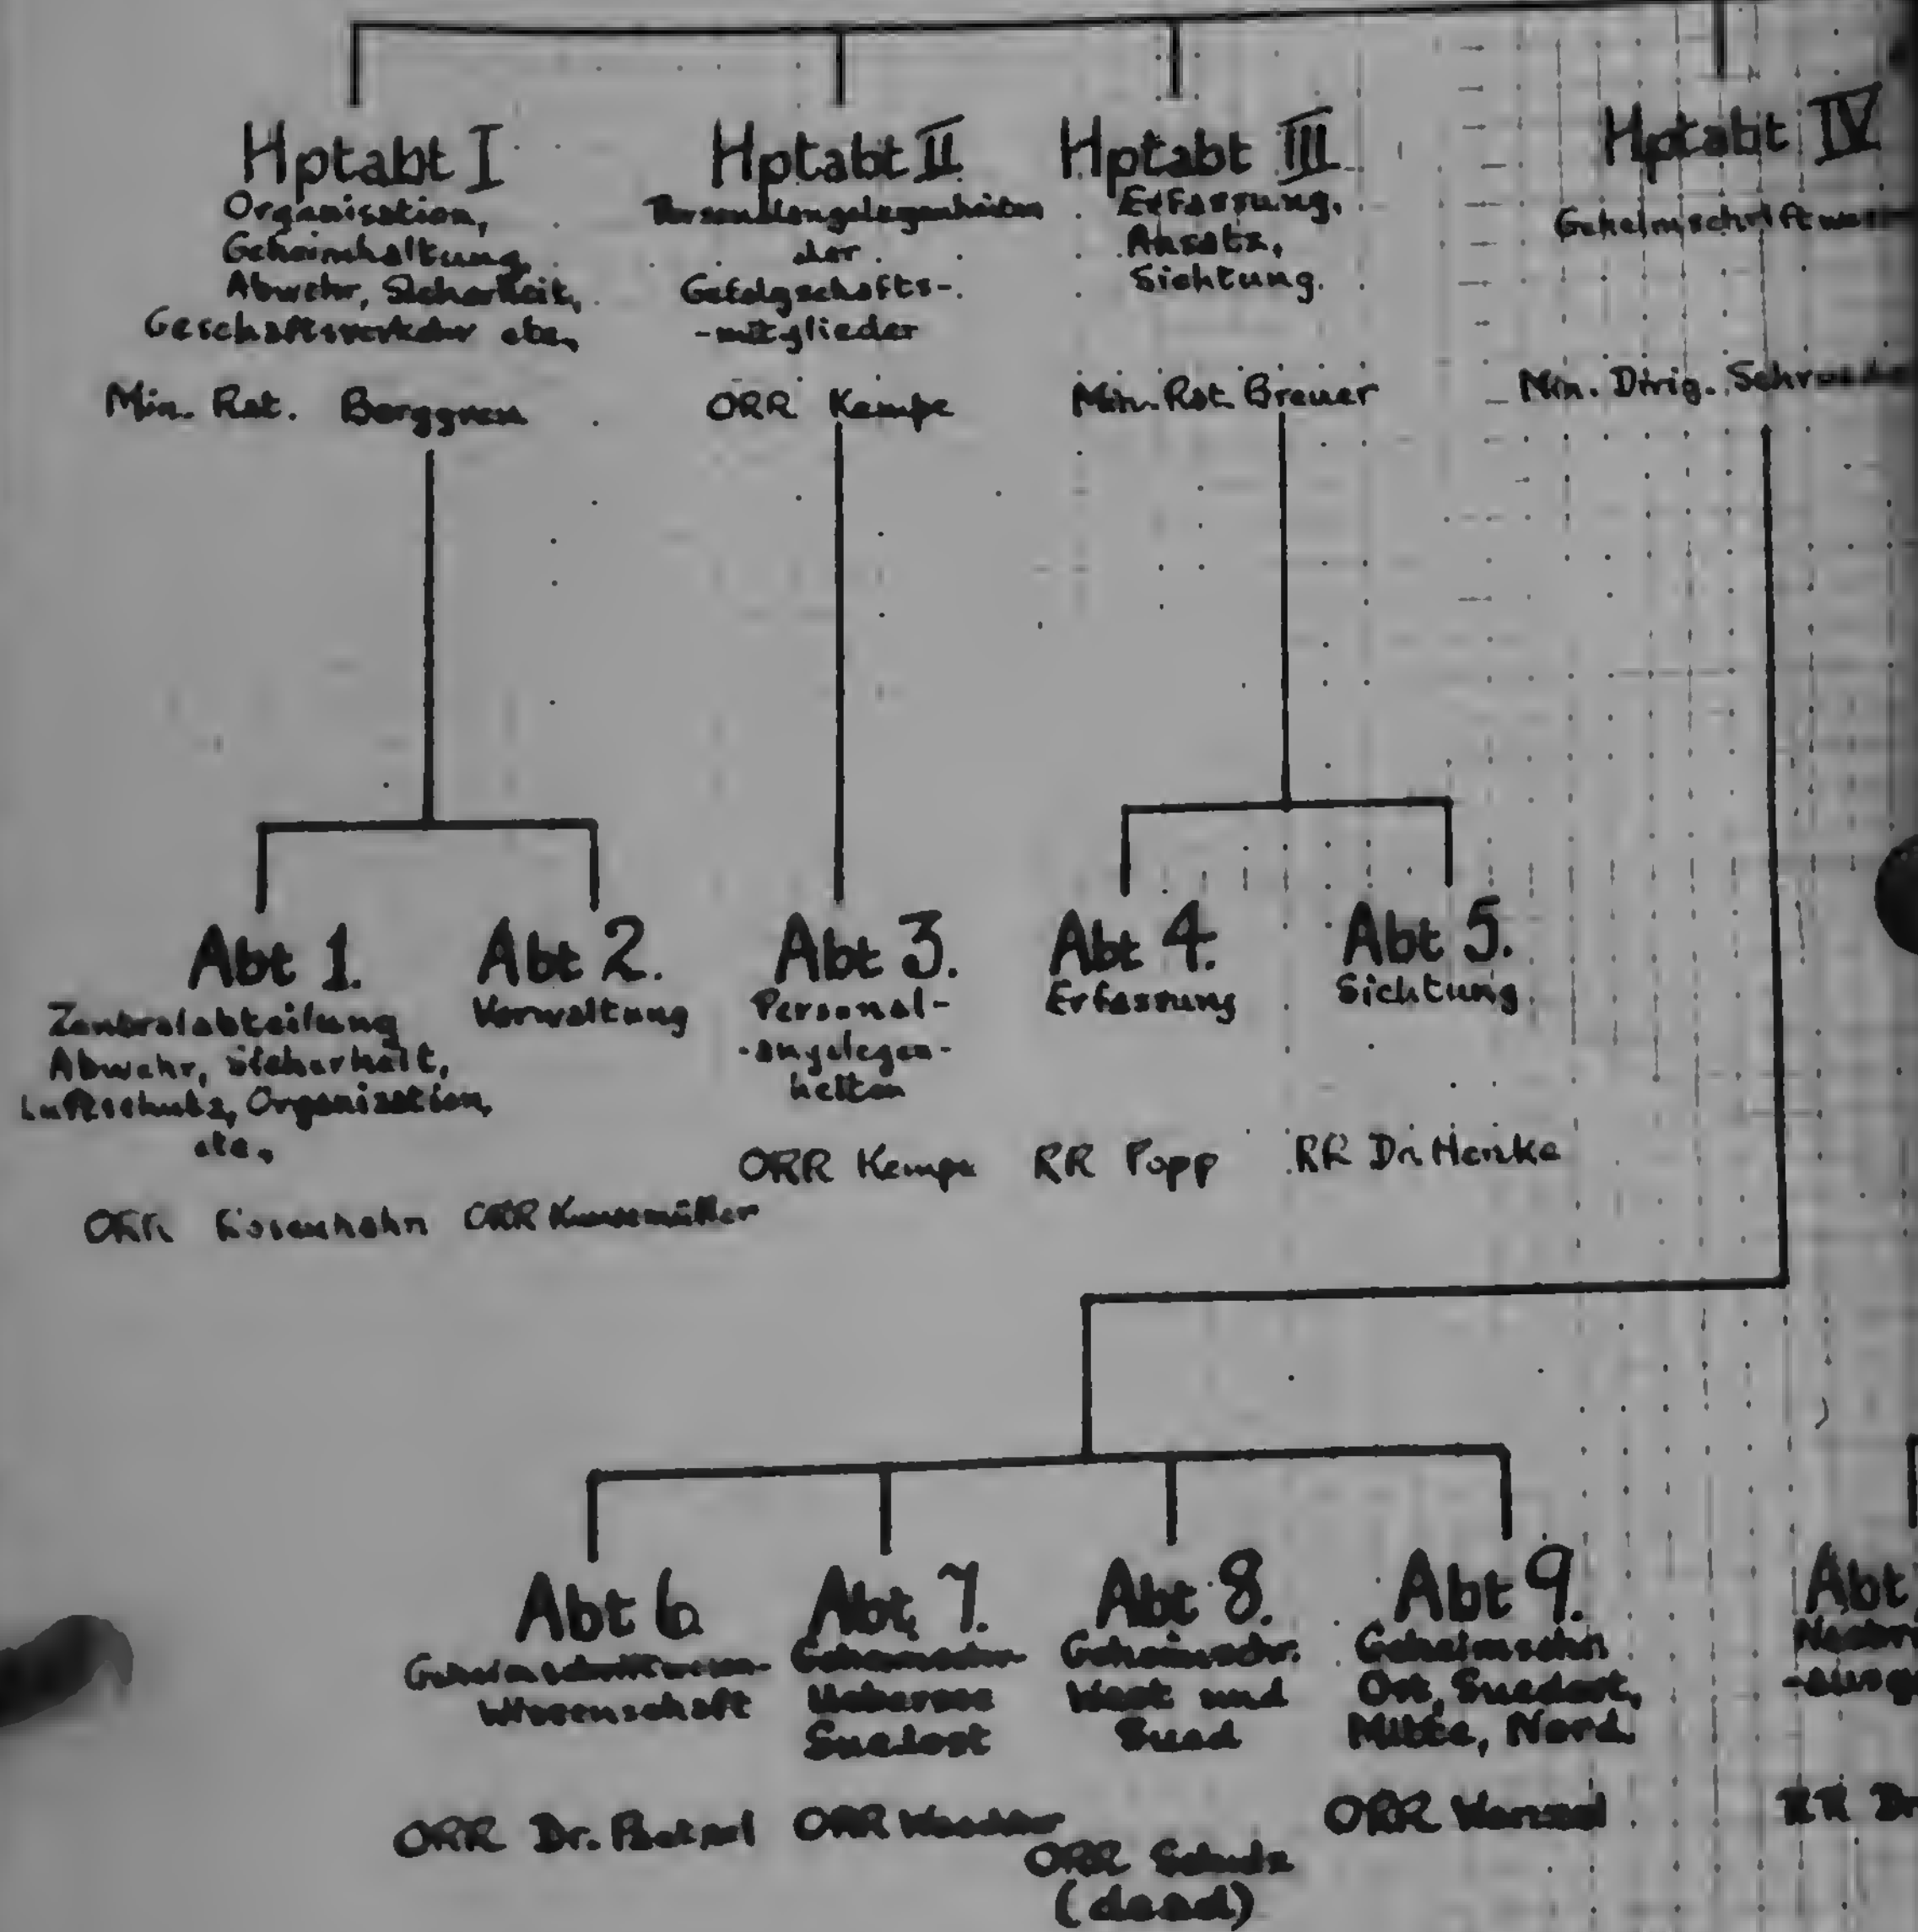 Hptabt I
Organisation,
Geheimhaltung,
Abwehr, Sicherheit,
Geschaftsverkehr etc,
Min. Rat. Berggren
Hptabt II
Personalangelegenheiten
der
Gefolgschafts-
-mitglieder
ORR Kempe
Hptabt III
Erfassung,
Ansatz,
Sichtung.
Min. Rat. Breuer
Hptabt IV
Min. Dirig.
Abt 1.
Zentralabteilung
Abwehr, Sicherheit,
Luftschutz, Organisation,
etc.
ORR Rosenhahn
Abt 2.
Verwaltung
ORR Kunsemüller
Abt 3.
Personal-
-angelegen-
heiten
ORR Kempe
Abt 4.
Erfassung
RR Popp
Abt 5.
Sichtung.
RR Dr. Henke
Abt 6
Wissenschaft
ORR Dr. Paetzel
Abt. 7.
Geheimschr
Uebersee
Suedost
ORR
Abt 8.
Geheimschr.
West und
Sued
ORR Schulz
(dead)
Abt 9.
Geheimschr
Ost, Suedost,
Mitte, Nord.
ORR Wenzel
Abt
RR Dr